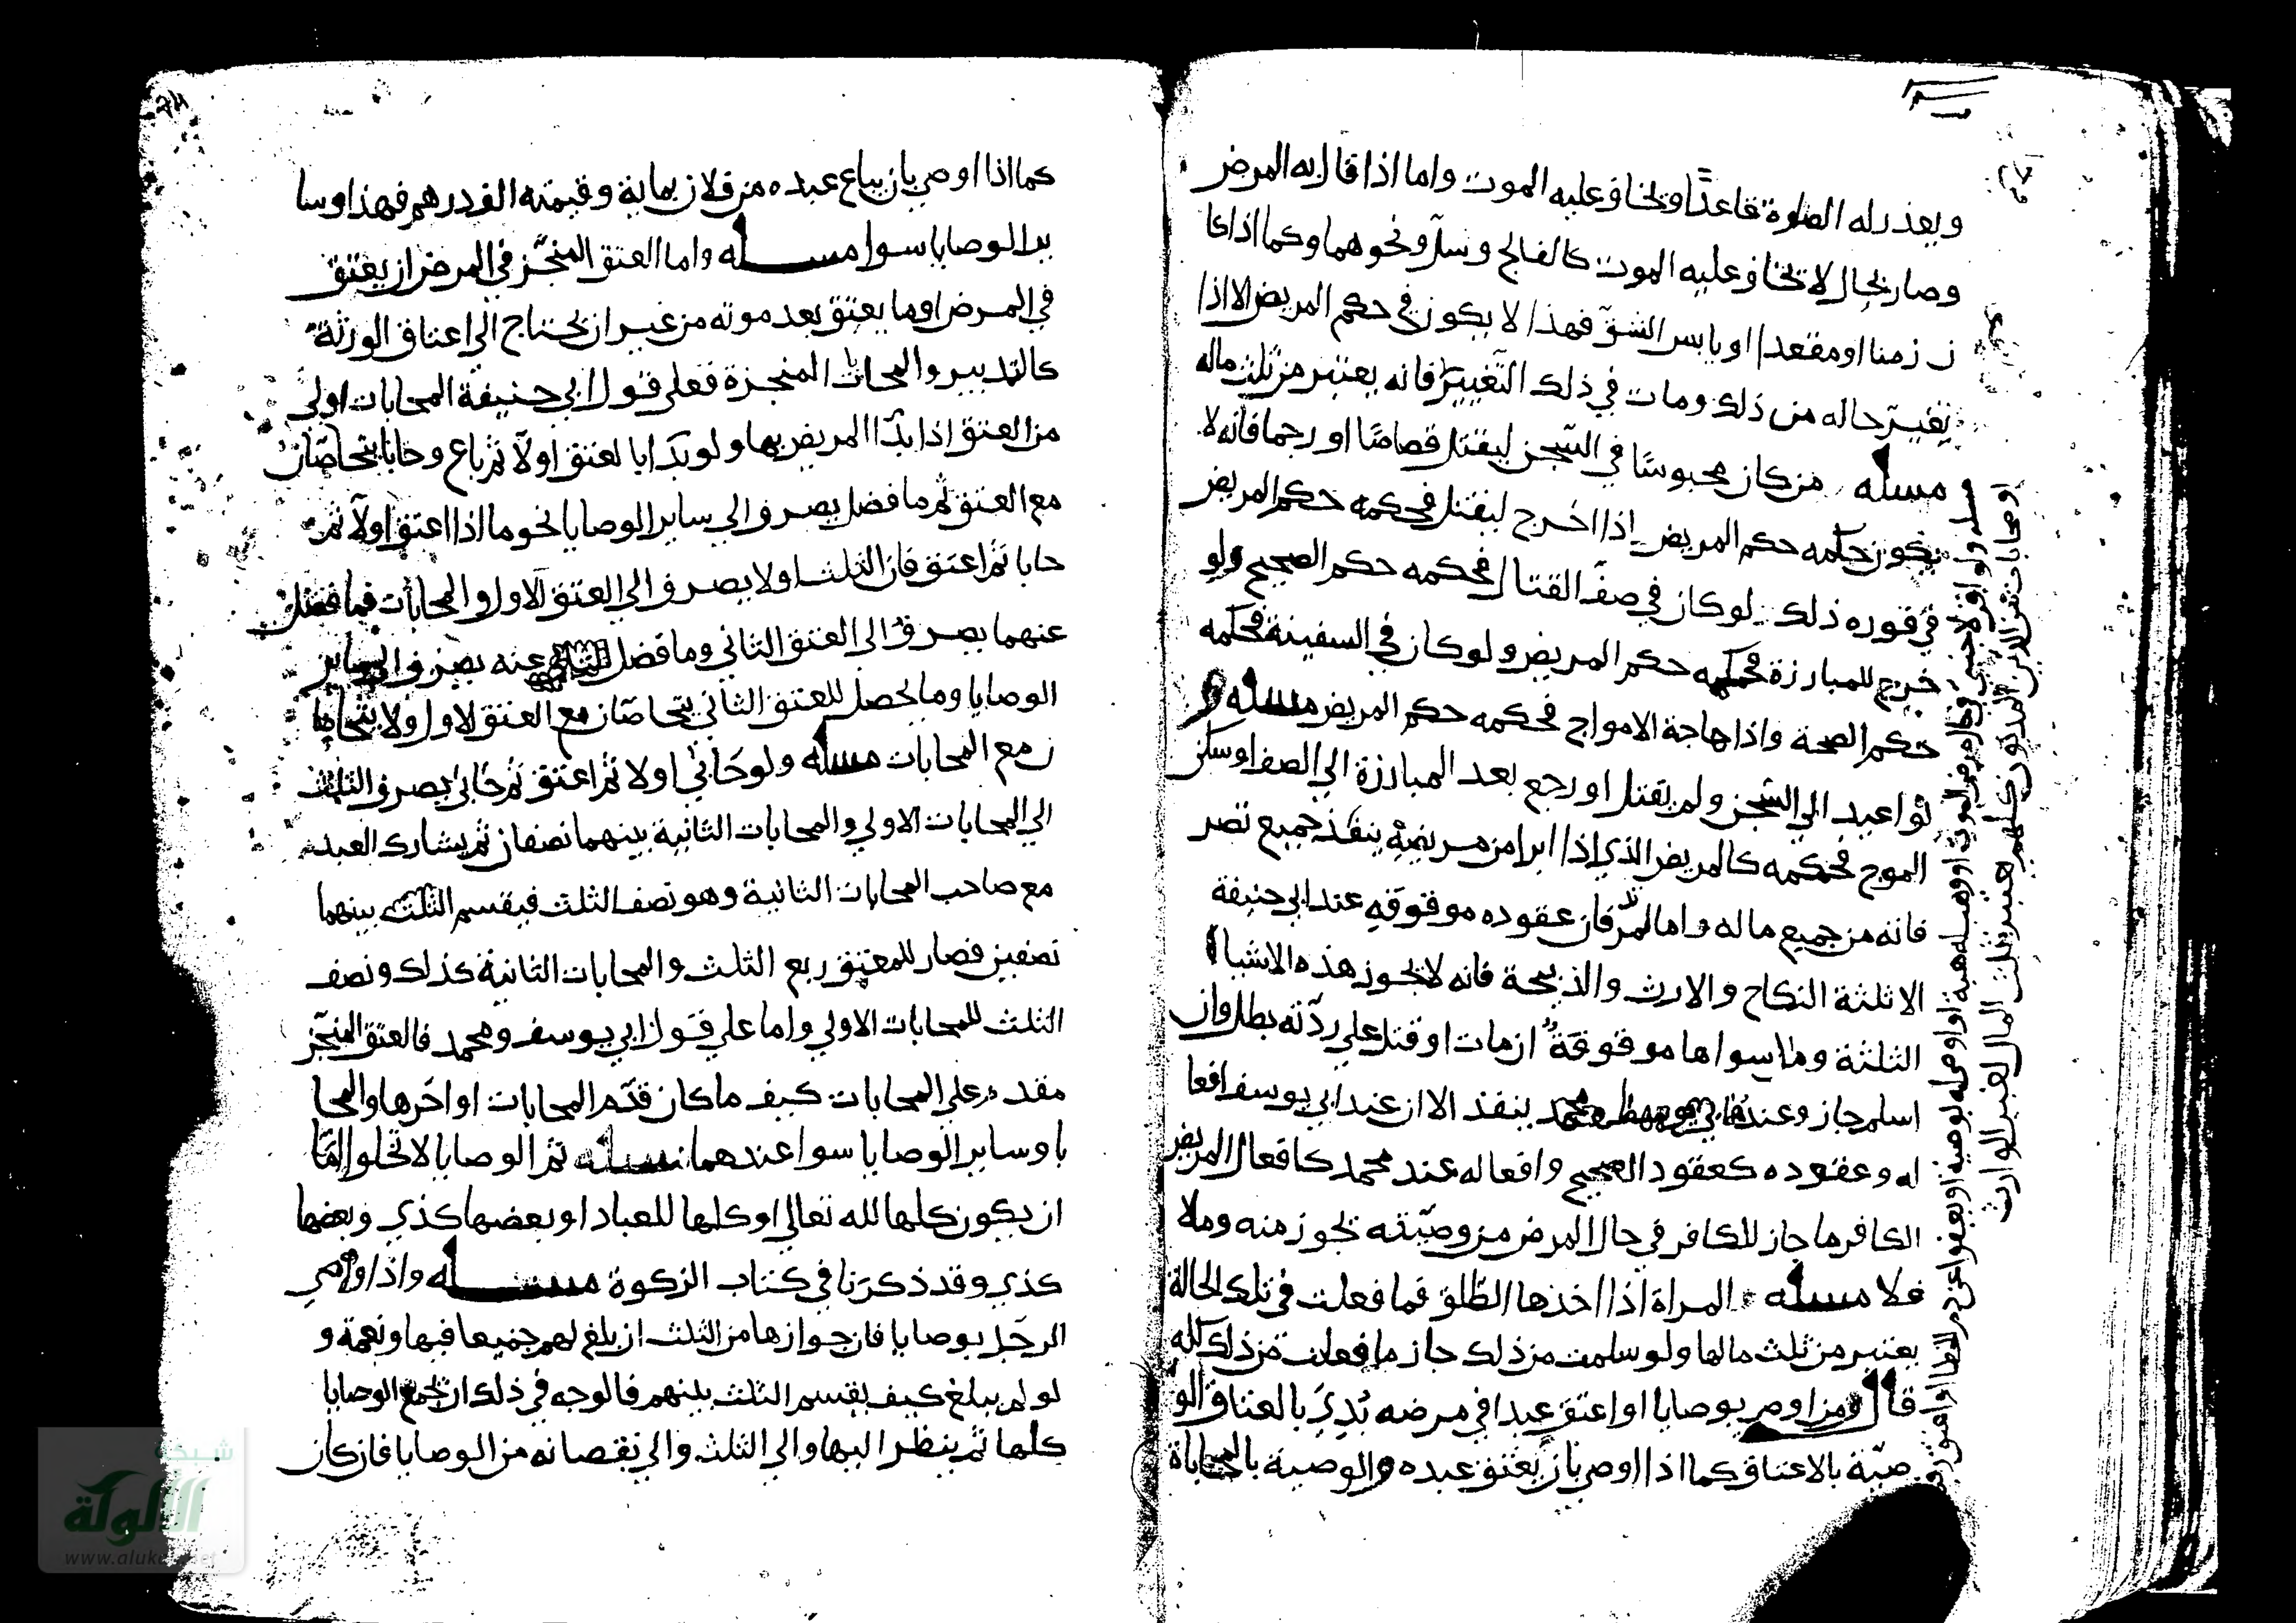 و يعذر له الصلوة قاعدًا ويخاف عليه الموت واما اذا قال به المرض
وصار بحال لا يخاف عليه الموت كالفالج وسل ونحوهما وكما اذا كا
ن زمنا او مقعدا او يابس الشق فهذا لا يكون في حكم المريض الا اذا
تغير حاله من ذلك ومات في ذلك التغيير فانه يعتبر من ثلث ماله
مسله من كان محبوسًا في السجن ليقتل قصاصًا او رجما فانه لا
يكون حكمه حكم المريض اذا اخرج ليقتل فحكمه حكم المريض
في فوره ذلك لو كان في صف القتال فحكمه حكم الصحيح ولو
خرج للمبارزة فحكمه حكم المريض ولو كان في السفينة فحكمه
حكم الصحة واذا هاجة الامواج فحكمه حكم المريض مسله و
لو اعيد الي السجن ولم يقتل او رجع بعد المبارزة الي الصف او سكن
الموج فحكمه كالمريض الذي اذا ابرا من مرضه ينفذ جميع تصر
فانه من جميع ماله واما المرتد فان عقوده موقوفه عند ابي حنيفة
الا ثلثة النكاح والارث والذبيحة فانه لا يجوز هذه الاشيا
الثلثة وما سواها موقوفة ان مات او قتل علي ردته بطل وان
اسلم جاز وعند ومحمد ينفذ الا ان عند ابي يوسف افعا
له وعقوده كعقود الصحيح وافعاله عند محمد كافعال المريض
الكافر ما جاز للكافر في حال المرض من وصيته تجوز منه وملا
فلا مسله المراة اذا اخذها الطلق فما فعلت في تلك الحالة
يعتبر من ثلث مالها ولو سلمت من ذلك جاز ما فعلت من ذلك كله
قال ومن اوصي بوصايا او اعتق عبدا في مرضه بُدي بالعتاق الو
صية بالاعتاق كما اذا اوصي بان يعتق عبده والوصية بالمحاباة
مسله ولو اقر لاجنبي في حال مرض الموت او وهب له هبة او اوصي له بوصية او يعفوا عن دم الخطا
او محابات من الدين المديون كلهم يعتبر بثلث المال لغير الوارث
كما اذا اوصي بان يباع عبده من فلان بماية وقيمته الف درهم فهذا وسا
ير الوصايا سوا مسله واما العتق المنجز في المرض ان يعتق
في المرض او ما يعتق بعد موته من غير ان يحتاج الي اعتاق الورثة
كالتدبير والمحابات المنجزة فعلي قول ابي حنيفة المحابات اولي
من العتق اذا بدا المريض بها ولو بدا بالعتق اولا ثم باع وحابا يتحاصان
مع العتق ثم ما فضل يصرف الي ساير الوصايا نحو ما اذا اعتق اولا ثم
حابا ثم اعتق فان الثلث اولا يصرف الي العتق الاول والمحابات فما فضل
عنهما يصرف الي العتق الثاني وما فضل عنه يصرف الي ساير
الوصايا وما يحصل للعتق الثاني يتحاصان مع العتق الاول ولا يتحاصا
ن مع المحابات مسله ولو حابي اولا ثم اعتق ثم حابي يصرف الثلث
الي المحابات الاولي والمحابات الثانية بينهما نصفان ثم يشارك العبد
مع صاحب المحابات الثانية وهو نصف الثلث فيقسم الثلث بينهما
نصفين فصار للمعتق ربع الثلث والمحابات الثانية كذلك ونصف
الثلث للمحابات الاولي واما علي قول ابي يوسف ومحمد فالعتق المنجز
مقدم علي المحابات كيف ما كان قدم المحابات او اخرها والمحا
با وساير الوصايا سوا عندهما مسله ثم الوصايا لا تخلوا اما
ان يكون كلها لله تعالي او كلها للعباد او بعضها كذي وبعضها
كذي وقد ذكرنا في كتاب الزكوة مسله واذا اوصي
الرجل بوصايا فان جوازها من الثلث ان بلغ لهم جميعا فبها ونعمة و
لو لم يبلغ كيف يقسم الثلث بينهم فالوجه في ذلك ان تجمع الوصايا
كلها ثم ينظر اليها والي الثلث والي نقصانه من الوصايا فان كان
شبكة
الألوكة
www.alukah.net